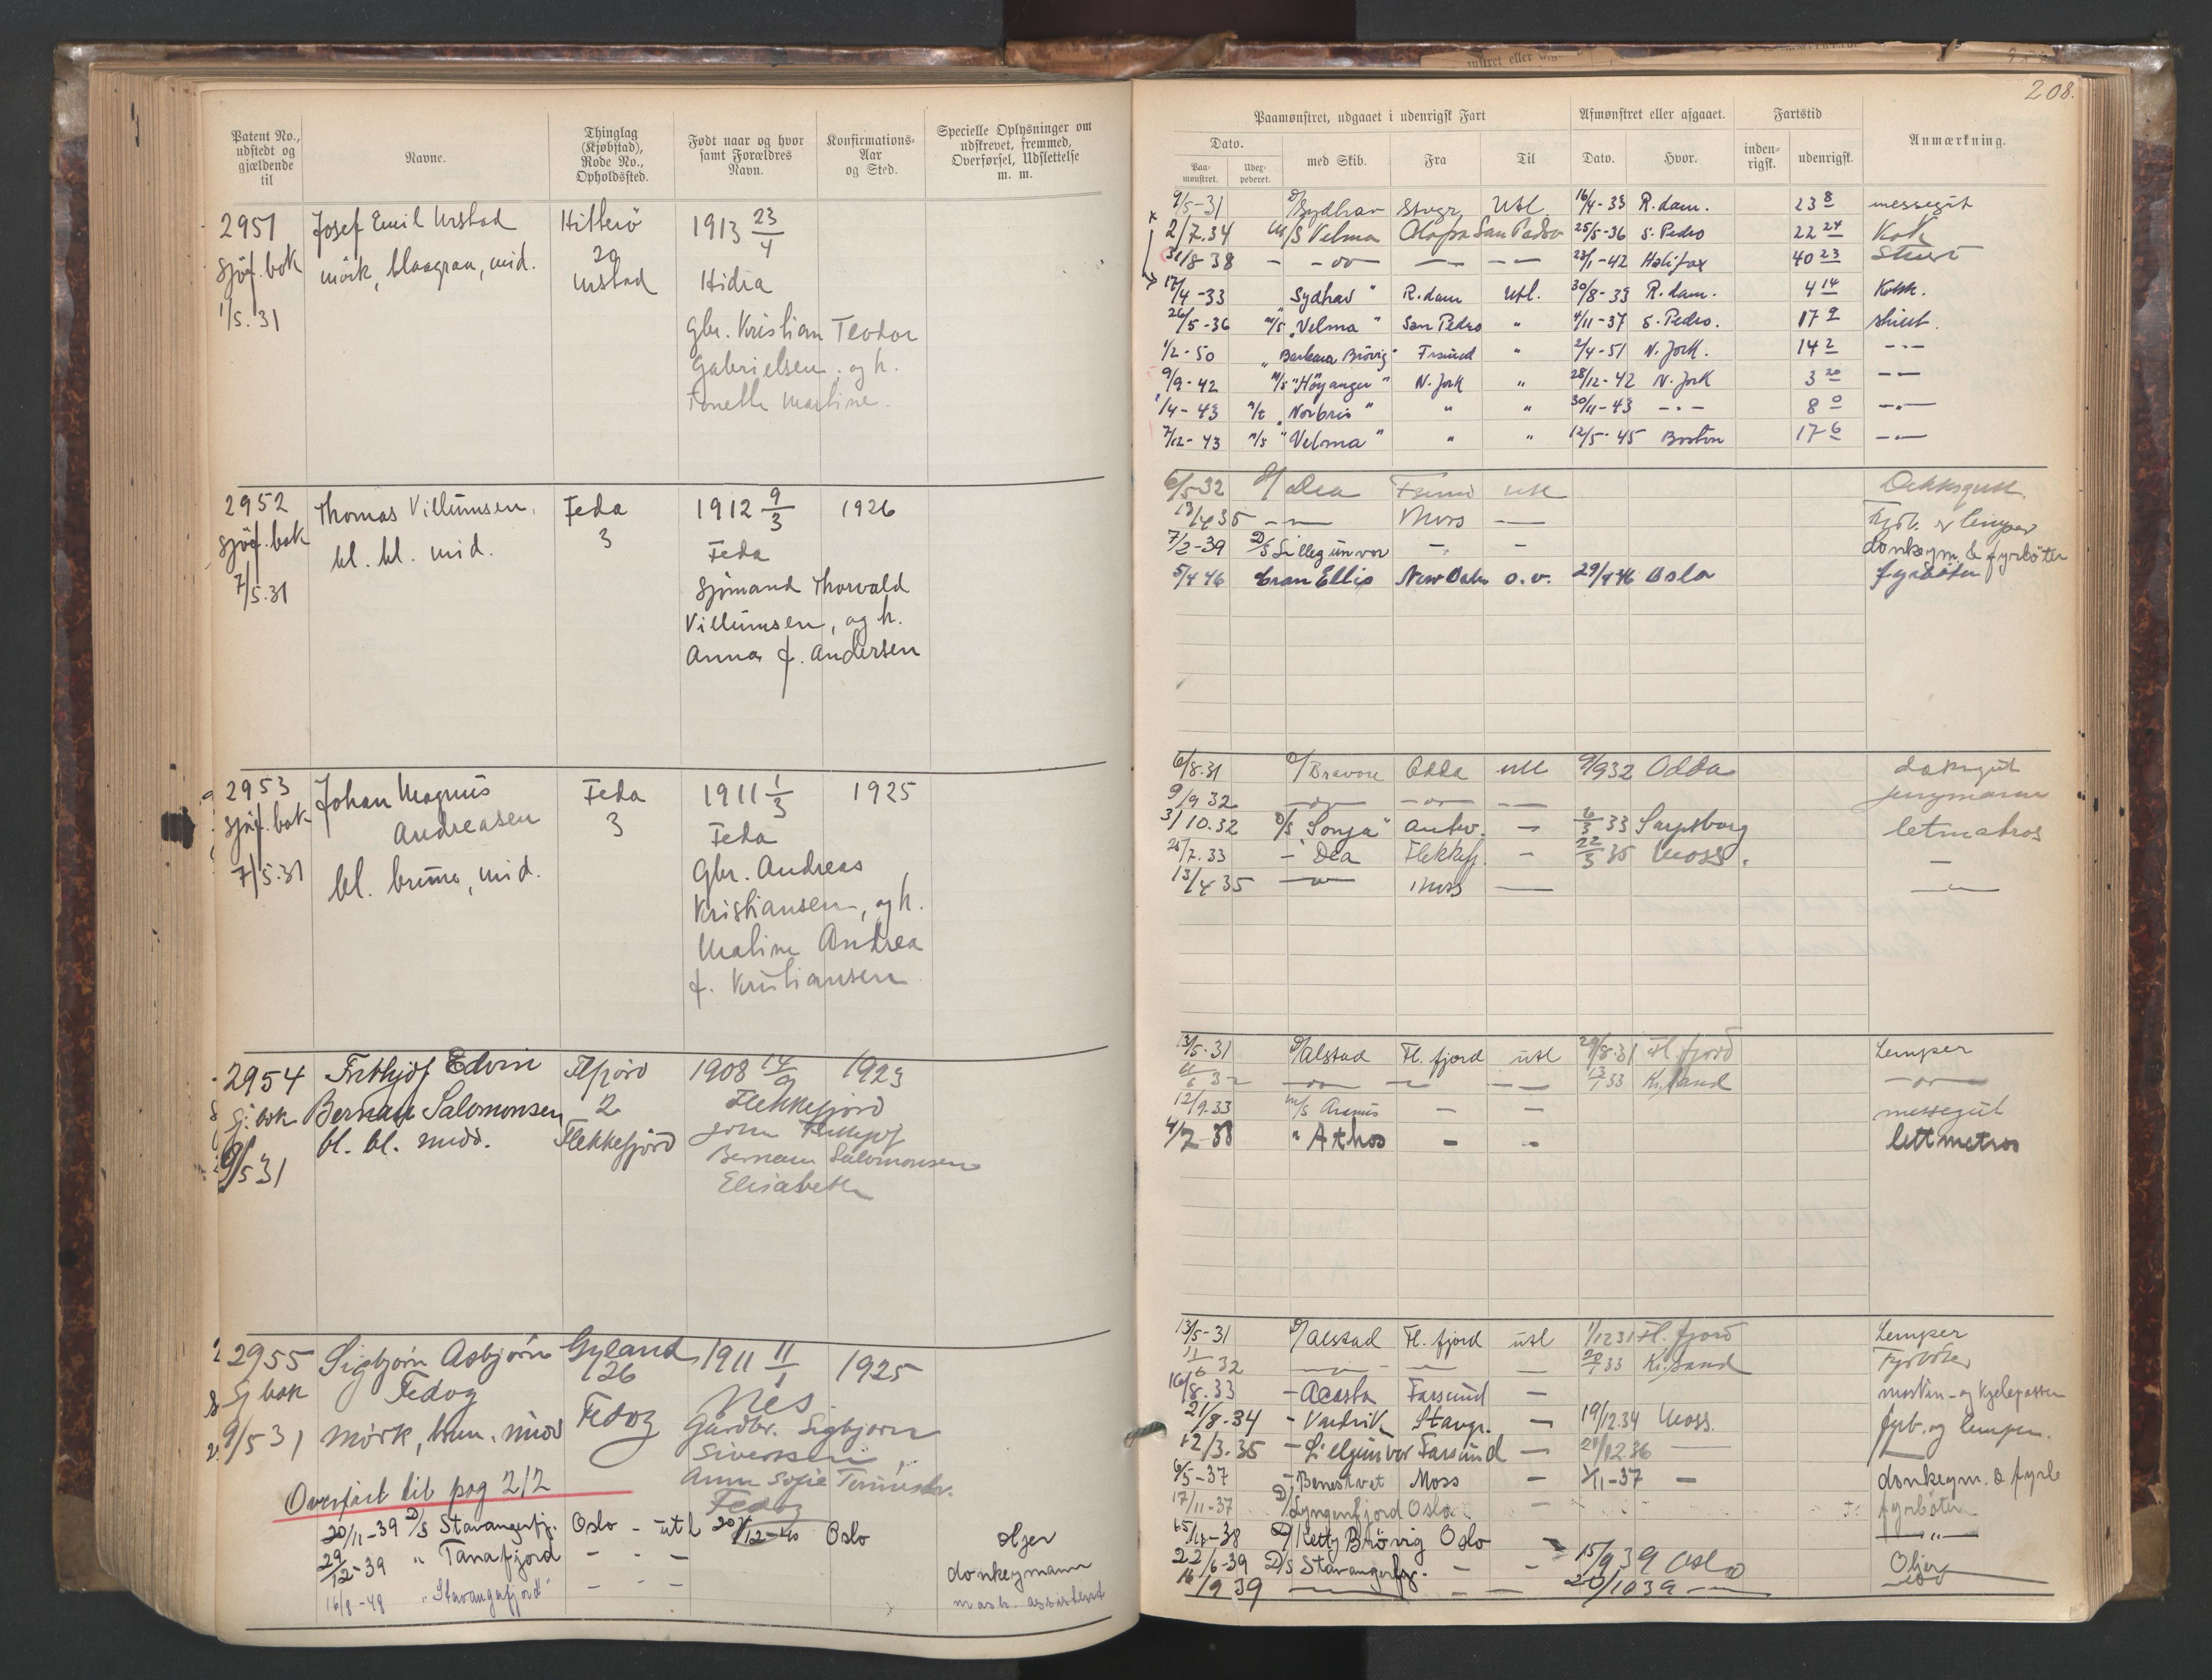 208.
Patent No., udstedt og gjældende til
Navne.
Thinglag (Kjøbstad), Rode No., Opholdssted.
Født naar og hvor samt Forældres Navn.
Konfirmations-Aar og Sted.
Specielle Oplysninger om udskrevet, fremmed, Overførsel, Udslettelse m. m.
2951 Josef Emil Urstad Hitterö 1913 23/4
sjöf. bok mörk, blaagraa, mid. 20
1/5.31 Urstad Hidra
gbr. Kristian Teodor
Gabrielsen, og h.
Tonette Martine.
2952 Thomas Villumsen, Feda 1912 9/3 1926
sjöf. bok bl. bl. mid. 3
7/5.31 Feda
Sjömand Thorvald
Villumsen, og h.
Anna f. Andersen
2953 Johan Magnus Feda 1911 1/3 1925
sjöf. bok Andreasen 3
7/5.31 bl. brune, mid. Feda
Gbr. Andreas
Kristiansen, og h.
Maline Andrea
f. Kristiansen
2954 Frithjof Edvin Flfjord 1908 14/9 1923
Sj. bok Bernan Salomonsen 2 Flekkefjord
9/5 31 bl. bl. midd. Flekkefjord John Frithjof
Bernan Salomonsen
Elisabeth
2955 Sigbjørn Asbjørn Gyland 1911 11/1 1925
Sj bok Fedog 126 Nes
9/5 31 mørk, brun. midd Fedog Gårdbr. Sigbjørn
Sivertsen,
Anna Sofie
Fedog
Overført til pag 212
20/11-39 D/s Stavangerfj. Oslo - utl 20/12-40 Oslo oljer
29/12-39 " Tanafjord - - - donkeymann
16/8-48 "Stavangerfjord" - - - mask. assistent
Paamønstret, udgaaet i udenrigsk Fart
Afmønstret eller afgaaet.
Fartstid
Dato.
Paa-mønstret.
Udex-pederet.
med Skib.
Fra
Til
Dato.
Hvor.
inden-rigsk.
udenrigsk.
Anmærkning.
9/5-31 D/ Sydhav Stvgr. Utl. 16/4-33 R.dam. 23 8 messegut
2/7.34 M/S Velma San Pedro 25/5-36 S. Pedro 22 24 Kok
31/8 38 - - oo - - - - 23/1-42 Halifax 40 23 Stuert
17/4-33 "Sydhav" R.dam Utl. 30/8-33 R.dam. 4 14 Kokk.
26/5-36 m/s "Velma" San Pedro " 4/11-37 S. Pedro. 17 9 stuert.
1/2-50 " Barbara Brövig" Frsund " 2/4-51 N. York. 14 2 - " -
9/9-42 m/s "Höyanger" N. York " 28/12-42 N. York 3 20 - " -
1/4-43 m/t "Norbris" " " 30/11-43 - " - 8 0 - " -
7/12-43 m/s "Velma" " " 12/5-45 Boston 17 6 - " -
6/5-32 D/ Dea Frsund utl Dekksgutt.
13/4 35 - " - Moss - Fyrb. og lemper
7/2-39 D/s Lillegunvor - - donkeym & fyrbøter
5/4 46 Cran Ellis o.v. 29/4-46 Oslo fyrbøter
6/8.31 D/ Bravore Odda utl 9/9 32 Odda dæksgut
9/9 32 - " - - " - - jungmann
3/10.32 D/s "Sonja" Antw. - 6/3 33 Sarpsborg letmatros
25/7.33 - Dea Flekkefj. - 22/3 35 Moss. -
13/4 35 - " - Moss - - " -
13/5-31 D/Alstad Fl. fjord utl 29/8.31 Fl. fjord Lemper
11/6 32 - " - - - 13/1 33 Kr.sand - " -
12/9.33 m/s Aramis - - messegut
4/2-38 " Athos - - lettmatros
13/5-31 D/Alstad Fl. fjord utl 1/12 31 Fl. fjord Lemper
11/6 32 - " - - - 20/1 33 Kr.sand Fyrbøter
16/8.33 - Acosta Farsund - maskin- og kjelepasser
21/8-34 - Vardvik Stavgr. - 19/12.34 Moss. fyrb. og lemper.
12/3.35 - Lillegunvor Farsund - 21/12.36 -
6/5-37 - Benestvet Moss - 3/11-37 - donkeym. & fyrb
17/11-37 D/ Lyngenfjord Oslo - fyrbøter
D/ Ketty Brøvig Oslo - " -
22/6-39 D/S Stavangerfj. - - 15/9 39 Oslo Oljer
16/9 39 - - - 20/10 39 -